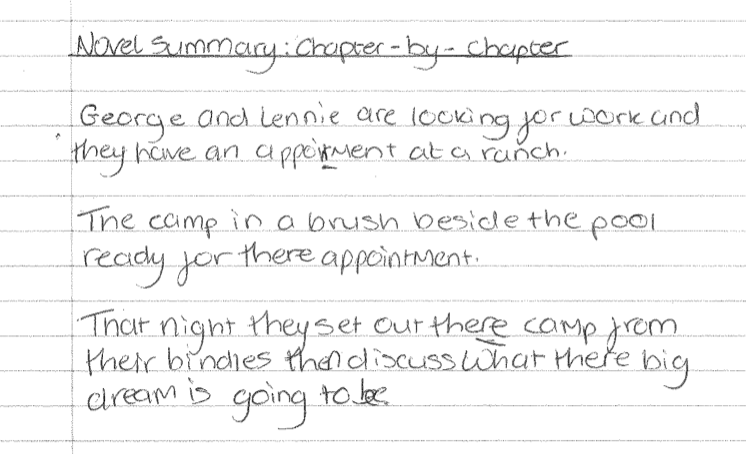 Novel Summary: Chapter-by-Chapter
George and Lennie are looking for work and
they have an appoitment at a ranch.
The camp in a brush beside the pool
ready for there appointment.
That night they set out there camp from
their bindies then discuss what there big
dream is going to be